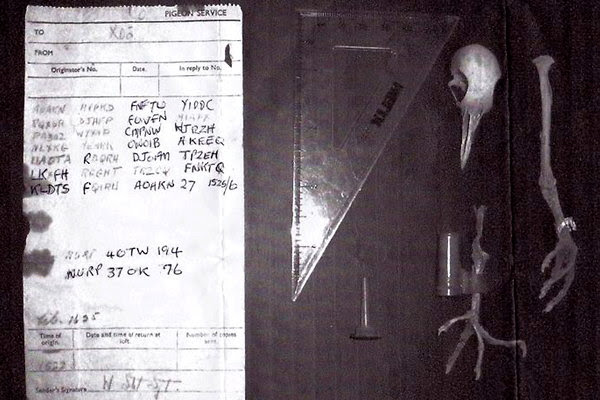 PIGEON SERVICE
TO X02
FROM
Originator's No. Date. In reply to No.
AOAKN HVPKD FNFJW YIDDC
RQXSR DJHFP GOVFN MIAPX
PABUZ WYYNP CMPNW HJRZH
NLXKG MEMKK ONOIB AKEEQ
UAOTA RBQRH DJOFM TPZEH
LKXGH RGGHT JRZCQ FNKTQ
KLDTS FQIRW AOAKN 27 1525/6
NURP 40TW 194
NURP 37OK 76
lib. 1625
Time of origin. Date and time of return at loft. Number of copies sent.
1522
Sender's Signature W Stot Sjt.
HELIX